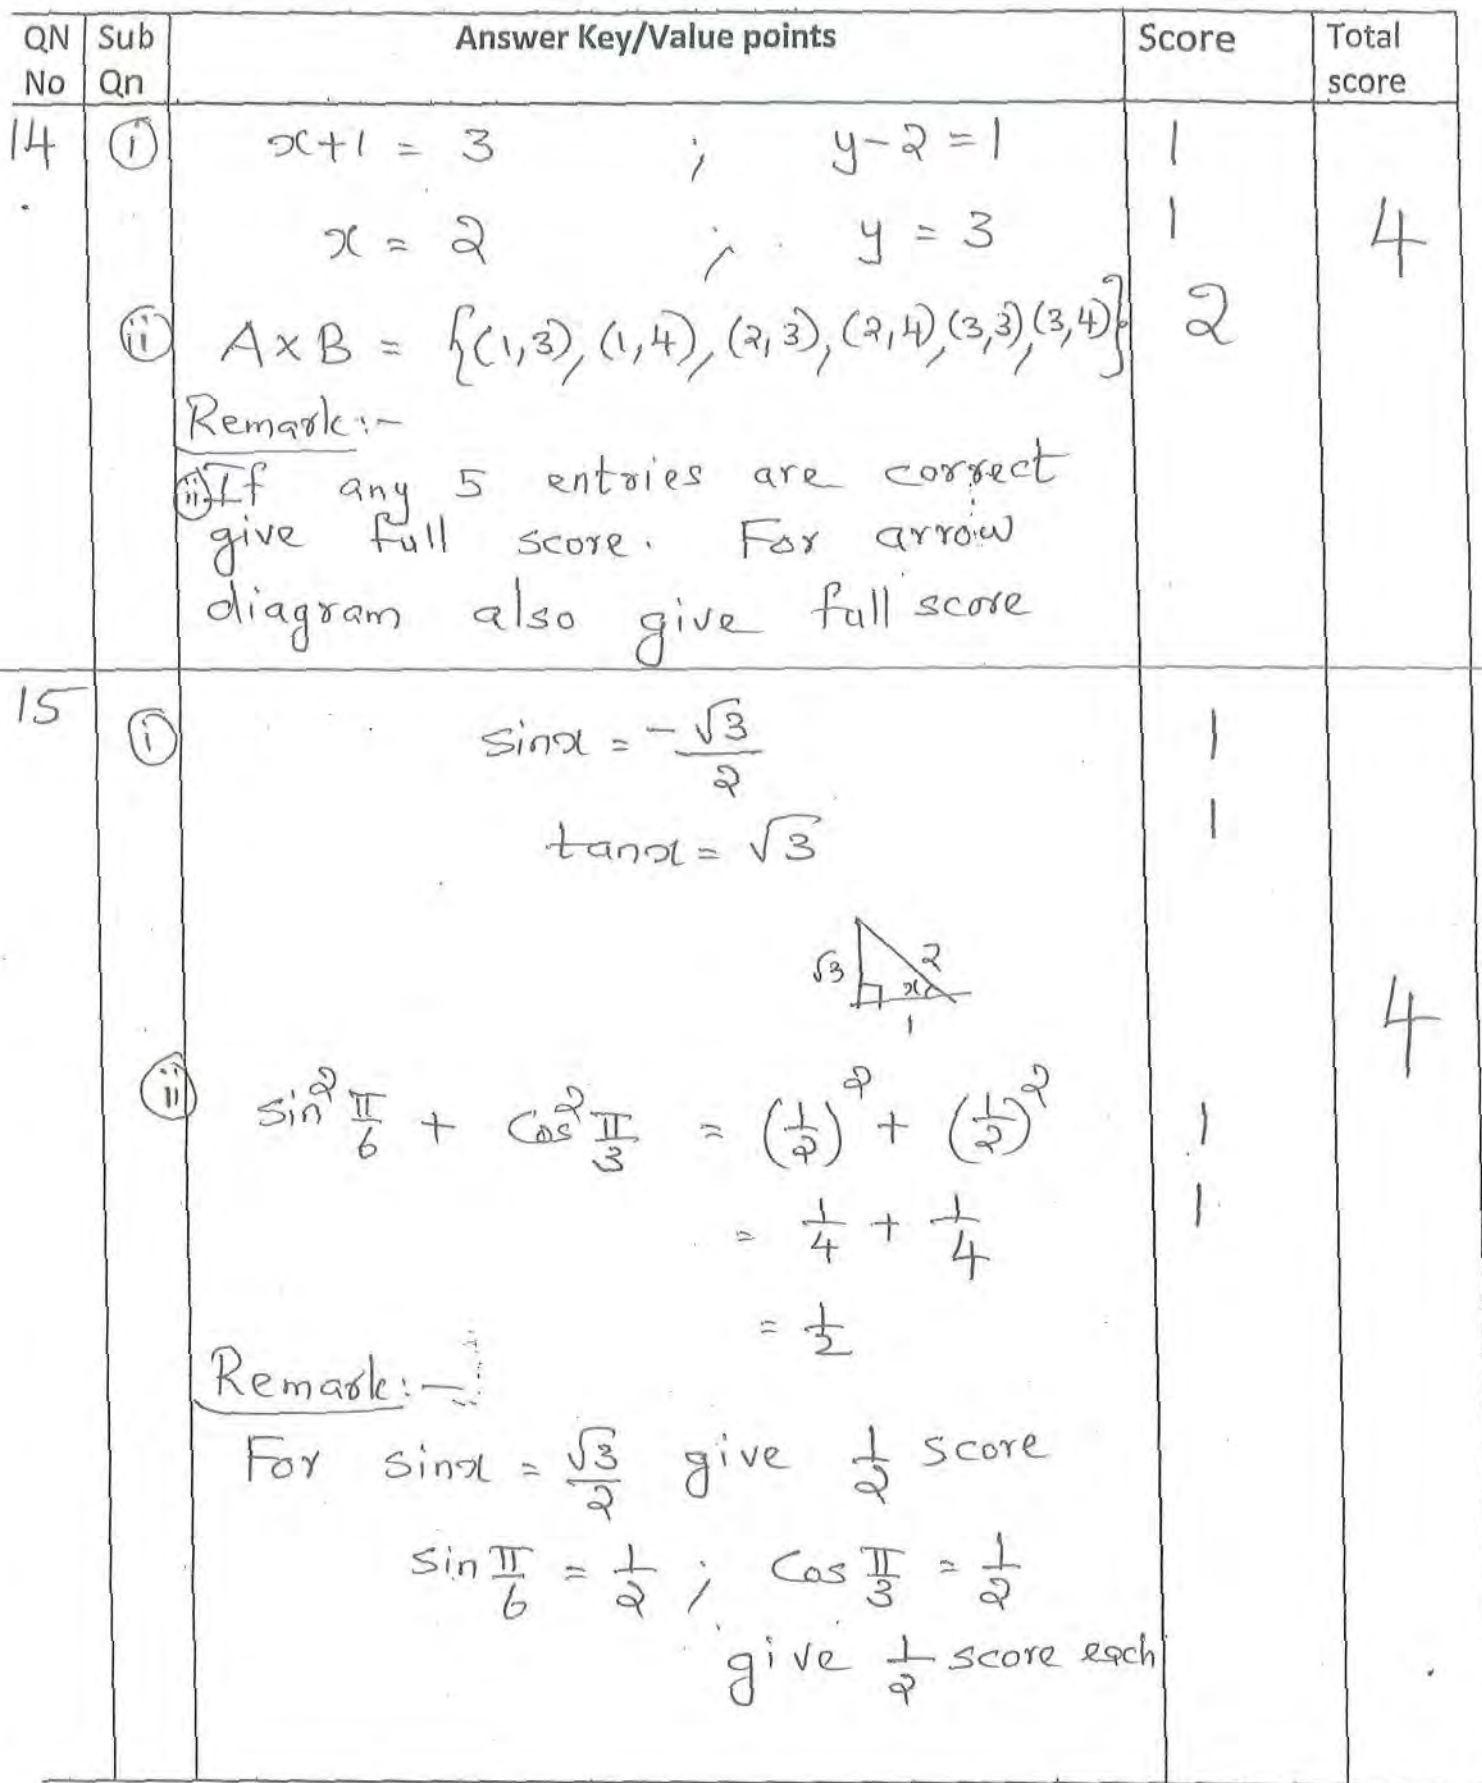 QN No | Sub Qn | Answer Key/Value points | Score | Total score
14 (i) x+1 = 3 ; y-2 = 1 1
x = 2 ; y = 3 1 4
(ii) A×B = {(1,3), (1,4), (2,3), (2,4), (3,3), (3,4)} 2
Remark:-
(ii) If any 5 entries are correct
give full score. For arrow
diagram also give full score
15 (i) sinx = -√3/2 1
tanx = √3 1
√3 2 x 1
4
(ii) sin² π/6 + Cos² π/3 = (1/2)² + (1/2)² 1
= 1/4 + 1/4 1
= 1/2
Remark:-
For sinx = √3/2 give 1/2 score
sin π/6 = 1/2 ; Cos π/3 = 1/2
give 1/2 score each